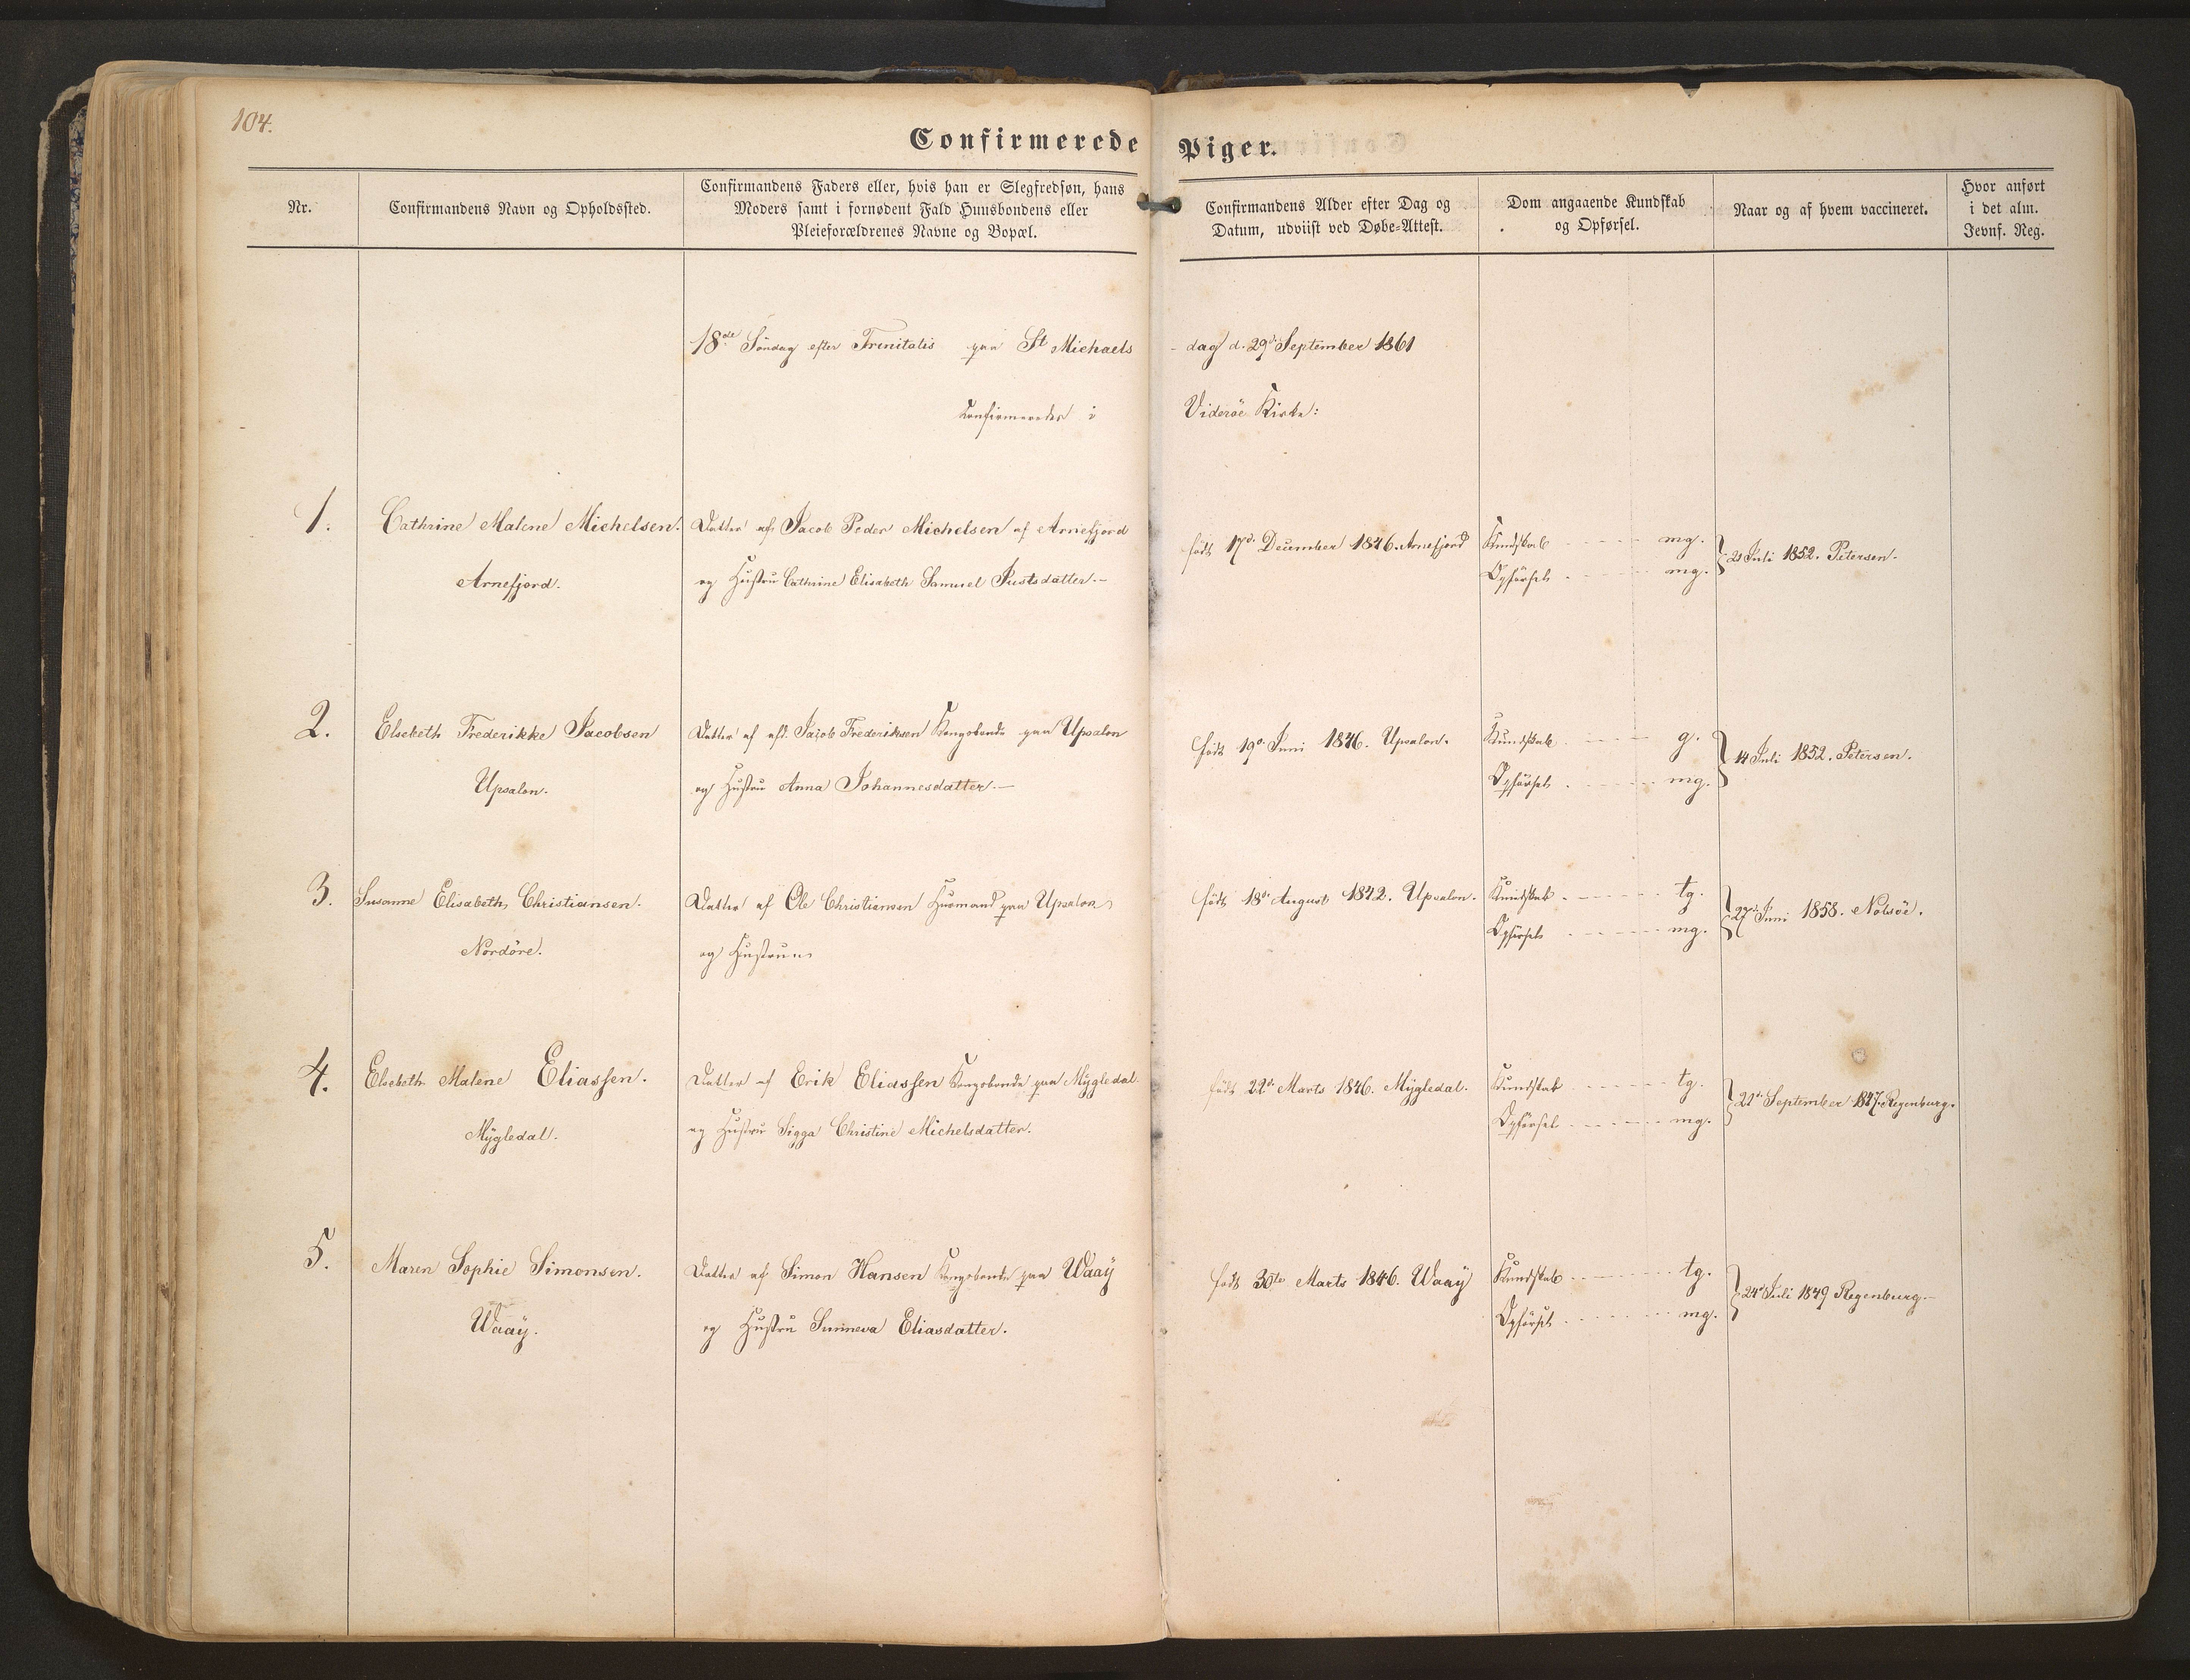 104.
Confirmerede Piger.
Nr.
Confirmandens Navn og Opholdssted.
Confirmandens Faders eller, hvis han er Slegfredsøn, hans
Moders samt i fornødent Fald Huusbondens eller
Pleieforældrenes Navne og Bopæl.
Confirmandens Alder efter Dag og
Datum, udviist ved Døbe-Attest.
Dom angaaende Kundskab
og Opførsel.
Naar og af hvem vaccineret.
Hvor anført
i det alm.
Jevnf. Reg.
18de Söndag efter Trinitatis paa St Michaels - dag d. 29de September 1861
Confirmeredes i Viderøe Kirke:
1.
Cathrine Malene Michelsen.
Arnefjord.
Datter af Jacob Peder Michelsen af Arnefjord
og Hustru Cathrine Elisabeth Samuel Justsdatter.-
född 17de December 1846. Arnefjord
Kundskab - - - - mg.
Opförsel - - - - mg.
21 Juli 1852. Petersen.
2.
Elsebeth Frederikke Jacobsen
Upsalon.
Datter af afd. Jacob Frederiksen Kongsbonde paa Upsalon
og Hustru Anna Johannesdatter.-
född 19de Juni 1846. Upsalon.
Kundskab - - - - g.
Opförsel - - - - mg.
14 Juli 1852. Petersen.
3.
Susanne Elisabeth Christiansen.
Nordöre.
Datter af Ole Christiansen Husmand paa Upsalon
og Hustru
född 18de August 1842. Upsalon.
Kundskab - - - - tg.
Opförsel - - - - mg.
27de Juni 1858. Nolsöe.
4.
Elsebeth Malene Eliassen.
Mÿgledal.
Datter af Erik Eliassen Kongsbonde paa Mÿgledal
og Hustru Sigga Christine Michelsdatter.
född 22de Marts 1846. Mÿgledal.
Kundskab - - - - tg.
Opförsel - - - - mg.
21de September 1847. Regenburg.
5.
Maren Sophie Simonsen.
Waaÿ.
Datter af Simon Hansen Kongsbonde paa Waaÿ
og Hustru Sunneva Eliasdatter.
född 30te Marts 1846. Waaÿ
Kundskab - - - - tg.
Opförsel - - - - mg.
24de Juli 1849 Regenburg.-